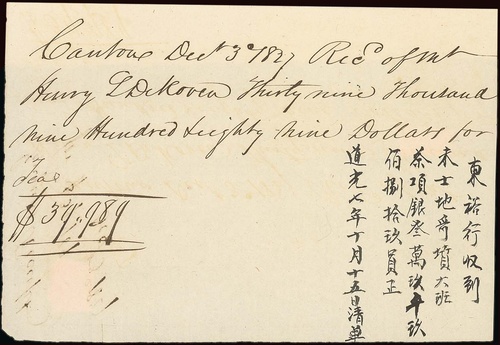 Canton Decr 3d 1827 Recd of Mr
Henry L DeKoven Thirty nine Thousand
nine Hundred & Eighty nine Dollars for
my
Teas
$39,989
東裕行收到
未士地哥墳大班
茶項銀叁萬玖千玖
佰捌拾玖員正
道光七年十月十五日清單